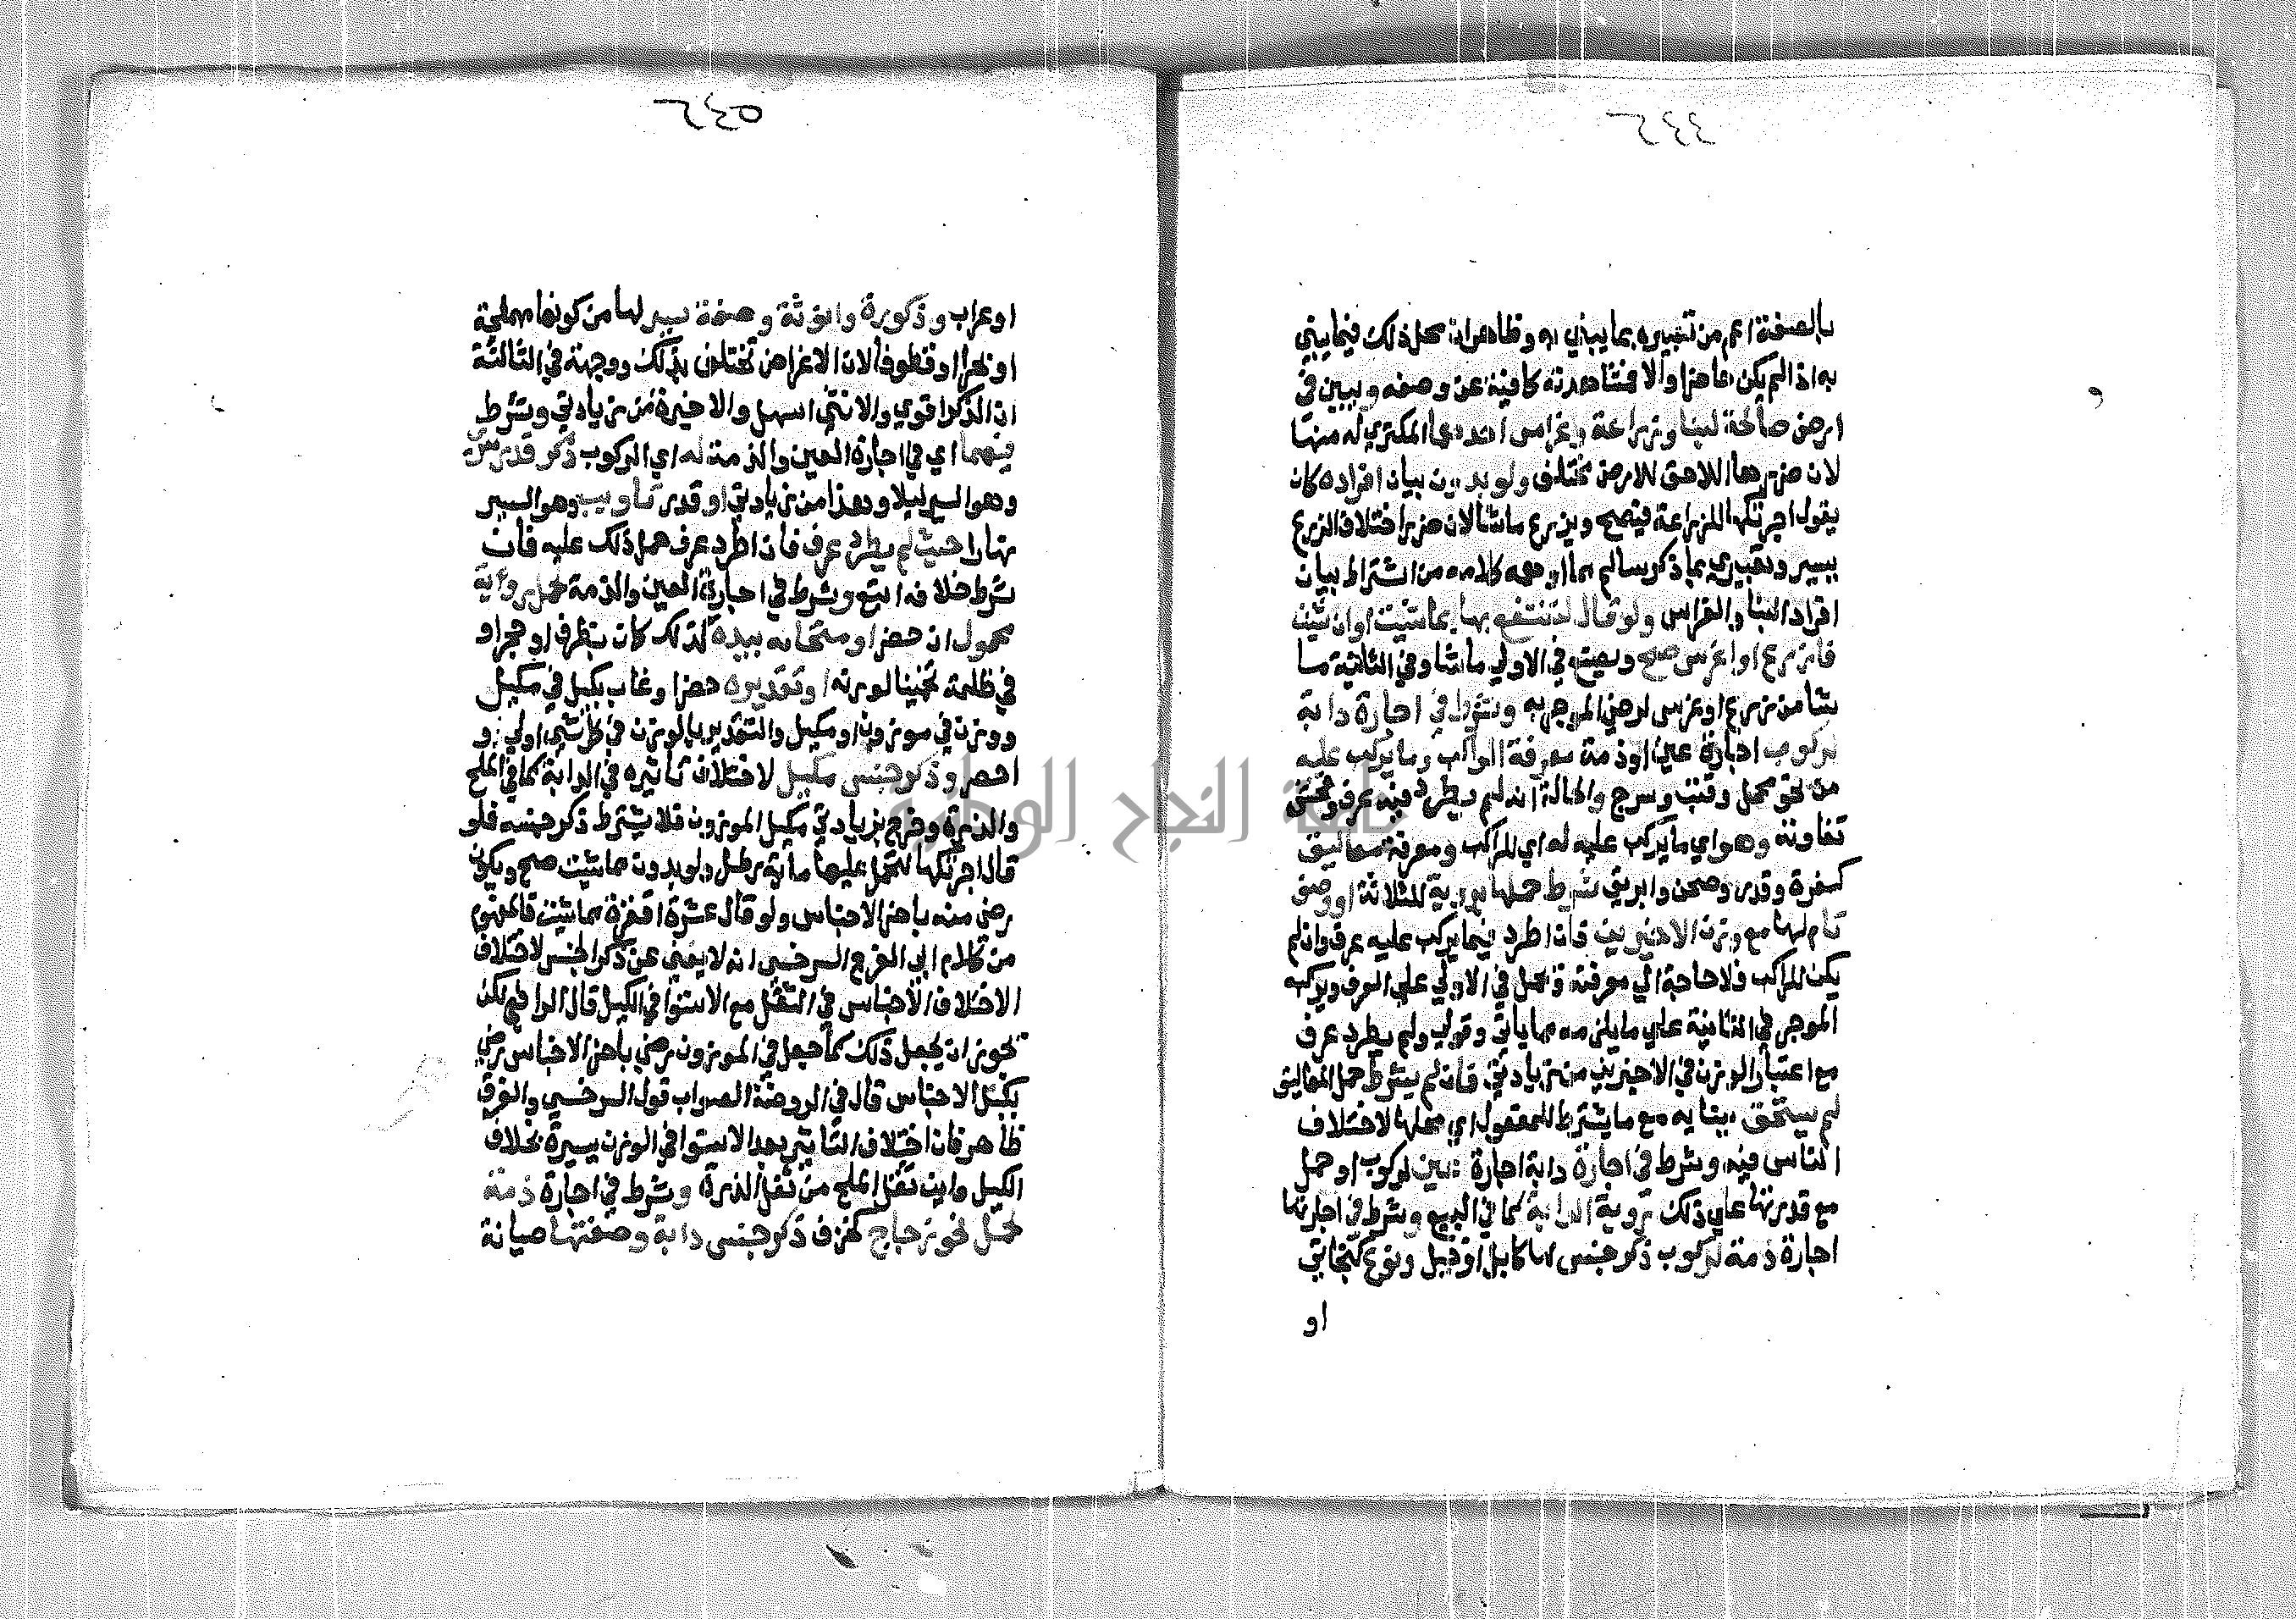 بالصفة اعم من تعبيره بما يبني به وظاهر ان محل ذلك فيما يبني
به اذا لم يكن حاضرا والا فمشاهدته كافية عن وصفه ويبين في
ارض صالحة لبنا وزراعة وغراس احدها المكتري له منها
لان ضررها اللاحق للارض مختلف ولو بدون بيان افراده كان
يقول اجرتكها للزراعة فيصح ويزرع ما شا لان ضرر اختلاف الزرع
يسير وتعبيري بما ذكر سالم مما اوهمه كلامه من اشتراط بيان
افراد البنا والغراس ولو قال لتنتفع بها بما شيت او ان شيت
فازرع او اغرس صح ويصنع في الاولي ما شا وفي الثانية ما
شا من زرع او غرس لرضي الموجر به وشرط في اجارة دابة
لركوب اجارة عين او ذمة معرفة الراكب وما يركب عليه
من نحو محمل وقتب وسرج والحالة انه لم يطرد فيه عرف وفحش
تفاوته وهو اي ما يركب عليه له اي للراكب ومعرفة معاليق
كسفرة وقدر وصحن وابريق شرط حملها برؤية للثلاثة او وصف
تام لها مع وزن الاخيرين فان اطرد فيما يركب عليه عرف وان لم
يكن للراكب فلا حاجة الي معرفته ويحمل في الاولي علي العرف ويركبه
الموجر في الثانية علي ما يلزمه مما ياتي وقولي ولم يطرد عرف
مع اعتبار الوزن في الاخيرين من زيادتي فان لم يشرط حمل المعاليق
لم يستحق ببنايه مع ما يشترط للمفعول اي حملها لاختلاف
الناس فيه وشرط في اجارة دابة اجارة عين لركوب او حمل
مع قدرتها علي ذلك رؤية الدابة كما في البيع وشرط في اجارتها
اجارة ذمة لركوب ذكر جنس لها كابل او خيل ونوع كبخاتي
او
او عراب وذكورة وانوثة وصفة سير لها من كونها مهملجة
او بحرا او قطوفا لان الاغراض تختلف بذلك ووجهته في الثالثة
ان الذكر اقوي والانثي اسهل والاخيرة من زيادتي وشرط
فيهما اي في اجارة العين والذمة له اي الركوب ذكر قدر سري
وهو السير ليلا وهذا من زيادتي او قدر تاويب وهو السير
نهارا حيث لم يطرد عرف فان اطرد عرف حمل ذلك عليه فان
شرط خلافه اتبع وشرط في اجارتي العين والذمة لحمل رواية
محمول ان حضر او متحانه بيده كذلك كان بظرف او حجر او
في ظلمة تخمينا لوزنه او تقديره حضر او غاب بكيل في مكيل
ووزن في موزون او مكيل والتقدير بالوزن في كل شي اولي و
احصر وذكر جنس مكيل لاختلاف تاثيره في الدابة كما في الملح
والذرة وخرج بزيادتي مكيل الموزون فلا يشترط ذكر جنسه فلو
قال اجرتكها لتحمل عليها مائة رطل ولو بدون مما شيت صح ويكون
رضي منه باضر الاجناس ولو قال عشرة اقفزة مما شيت فالمفهوم
من كلام ابي الفرج السرخسي انه لا يغني عن ذكر الجنس لاختلاف
الاختلاف الاجناس في الثقل مع الاستوا في الكيل قال الرافعي لكن
يجوز ان يجعل ذلك كما جعل في الموزون رضي باضر الاجناس رضي
بكيل الاجناس قال في الروضة الصواب قول السرخسي والفرق
ظاهر فان اختلاف التاثير بعد الاستوا في الوزن يسيرة بخلاف
الكيل واين ثقل الملح من ثقل الذرة وشرط في اجارة ذمة
لحمل نحو زجاج كخزف ذكر جنس دابة وصفتها صيانة